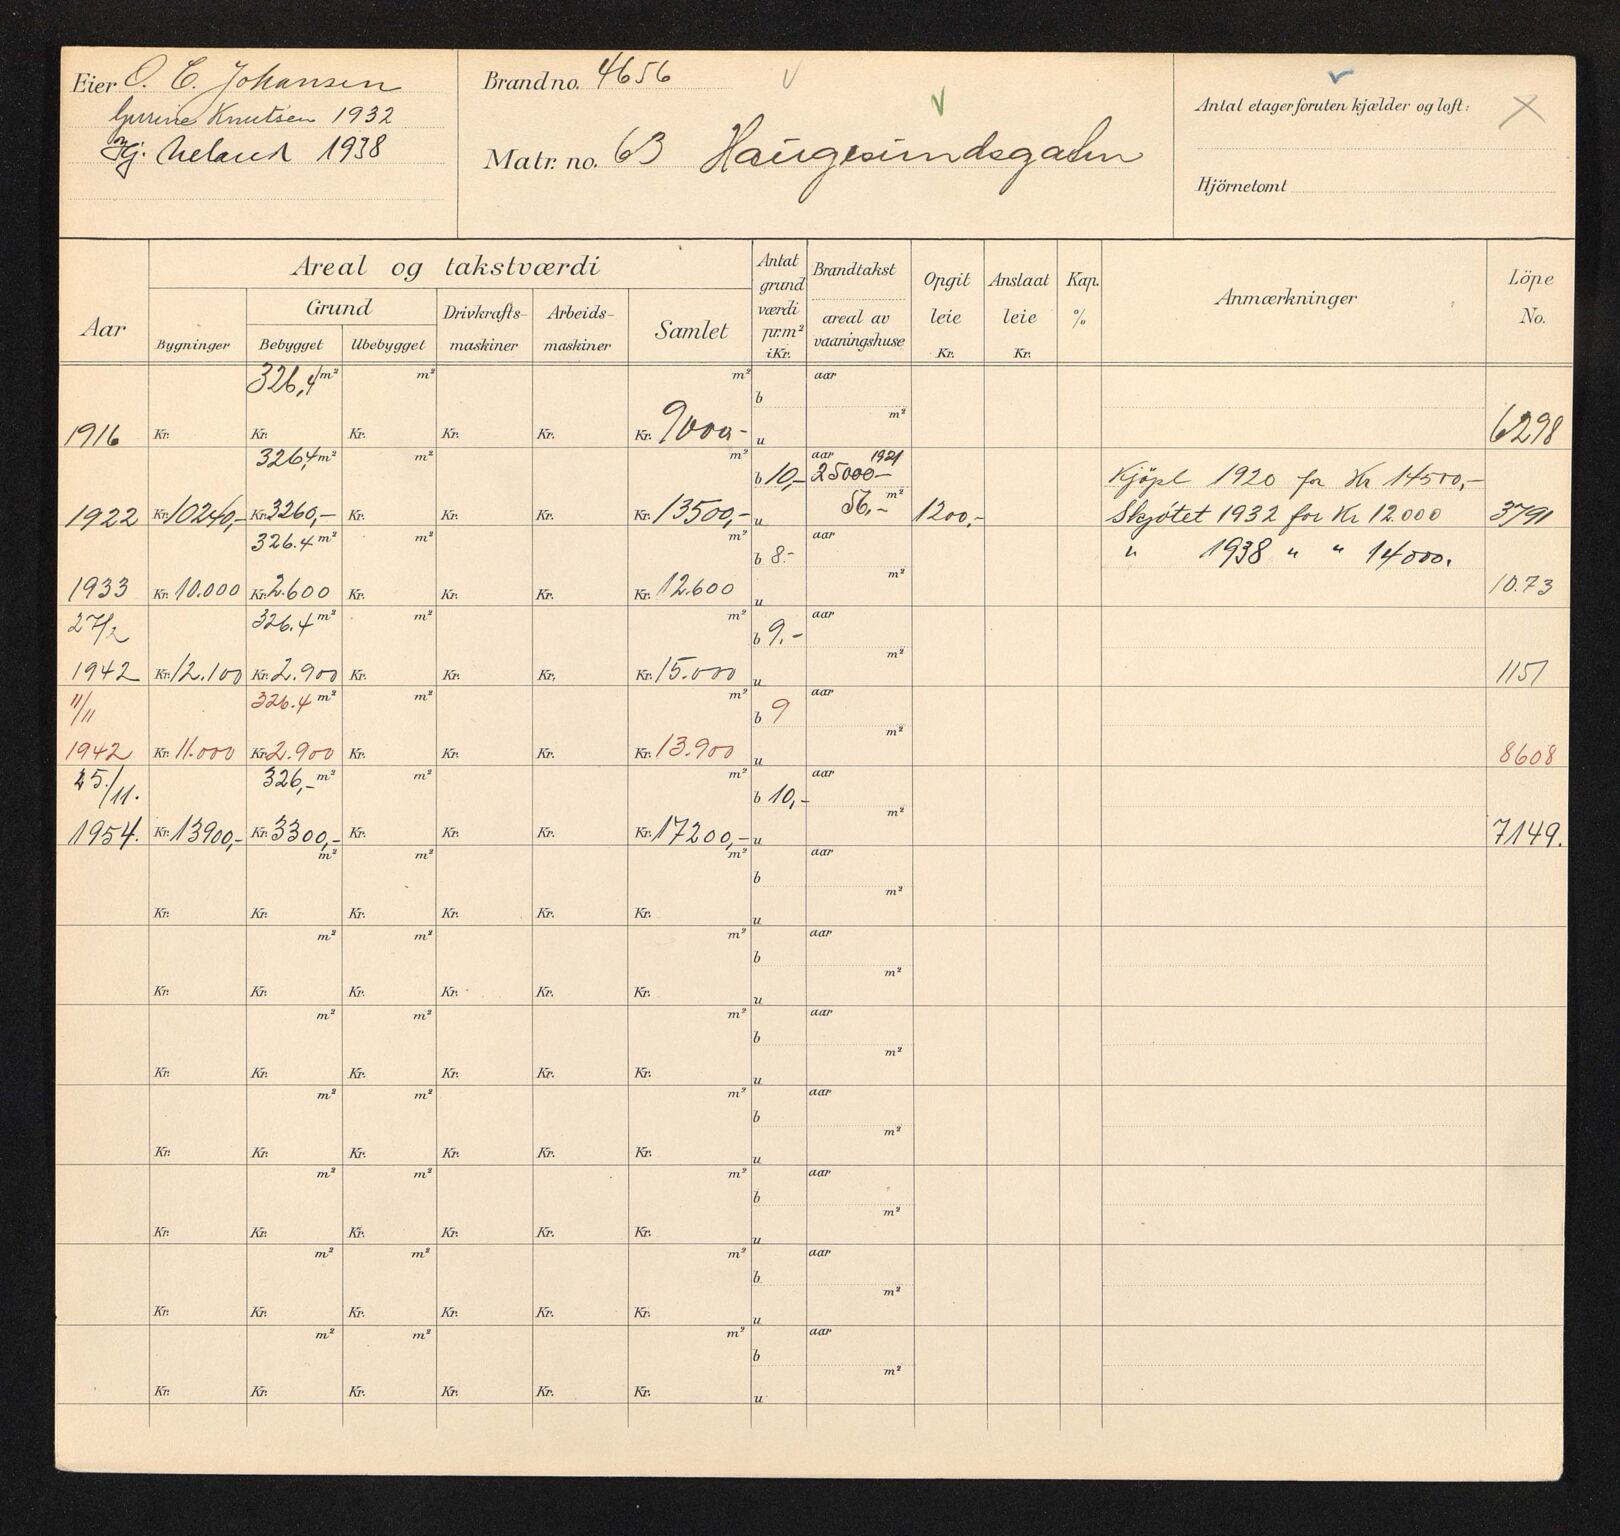 Eier O. C. Johansen
Knutsen 1932
Hj. Meland 1938
Brandno. 4656
Matr. no. 63 Haugesundsgaten
Antal etager foruten kjælder og loft:
Hjörnetomt
Aar
Areal og takstværdi
Grund
Bygninger
Bebygget
Ubebygget
Drivkrafts-
maskiner
Arbeids-
maskiner
Samlet
Antat
grund
værdi
pr.m²
i Kr.
Brandtakst
areal av
vaaningshuse
Opgit
leie
Kr.
Anslaat
leie
Kr.
Kap.
%
Anmærkninger
Löpe
No.
326,4 m² m² m² aar
b
m²
1916 Kr. Kr. Kr. Kr. Kr. Kr. 9000,- u 6298
326,4 m² m² m² aar 1921
b 10,- 25000,- Kjöpt 1920 for Kr 14500,-
56,- m²
1922 Kr. 10240,- Kr. 3260,- Kr. Kr. Kr. Kr. 13500,- u 1200,- Skjötet 1932 for Kr 12.000 3791
326.4 m² m² m² aar
b 8.- " 1938 " " 14000.
m²
1933 Kr. 10.000 Kr. 2.600 Kr. Kr. Kr. Kr. 12.600 u 1073
27/2 326.4 m² m² m² aar
b 9.-
m²
1942 Kr. 12.100 Kr. 2.900 Kr. Kr. Kr. Kr. 15.000 u 1151
11/11 326.4 m² m² m² aar
b 9
m²
1942 Kr. 11.000 Kr. 2.900 Kr. Kr. Kr. Kr. 13.900 u 8608
25/11. 326,- m² m² m² aar
b 10,-
m²
1954. Kr. 13900,- Kr. 3300,- Kr. Kr. Kr. Kr. 17200,- u 7149.
m² m² m² aar
b
m²
Kr. Kr. Kr. Kr. Kr. Kr. u
m² m² m² aar
b
m²
Kr. Kr. Kr. Kr. Kr. Kr. u
m² m² m² aar
b
m²
Kr. Kr. Kr. Kr. Kr. Kr. u
m² m² m² aar
b
m²
Kr. Kr. Kr. Kr. Kr. Kr. u
m² m² m² aar
b
m²
Kr. Kr. Kr. Kr. Kr. Kr. u
m² m² m² aar
b
m²
Kr. Kr. Kr. Kr. Kr. Kr. u
m² m² m² aar
b
m²
Kr. Kr. Kr. Kr. Kr. Kr. u